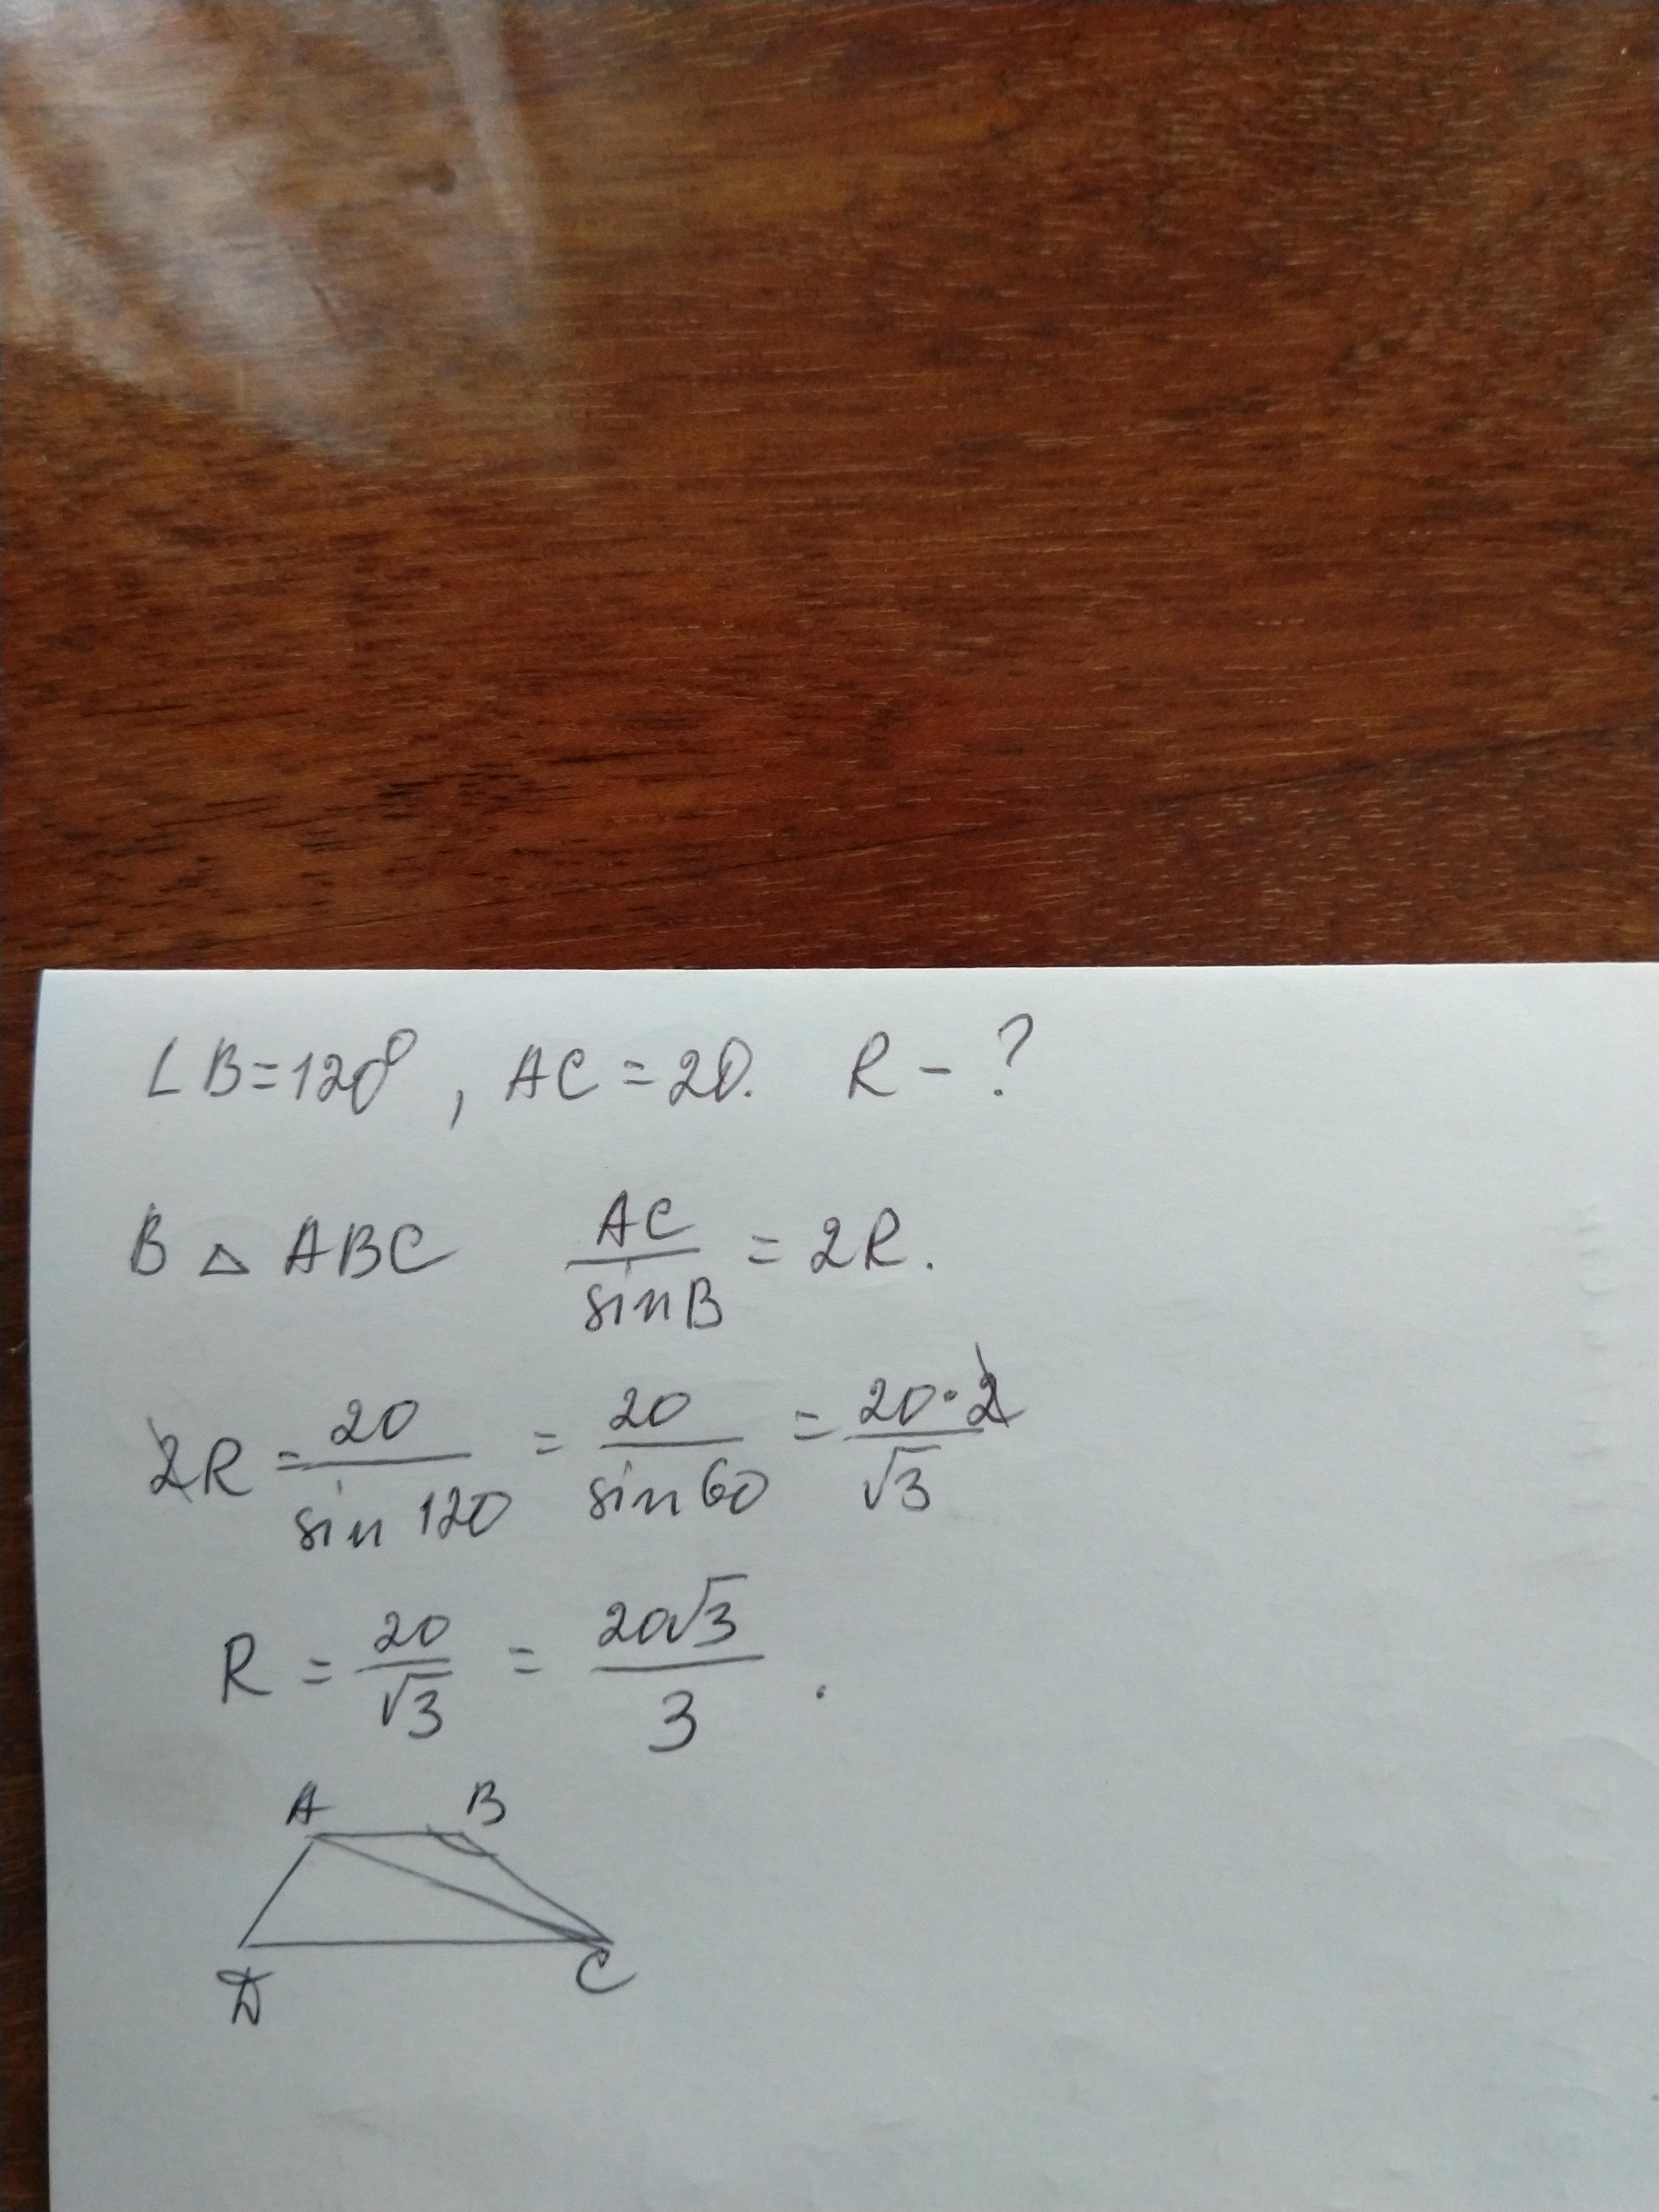 ∠B=120°, AC=20. R-?
В △ ABC AC/sinB = 2R.
2R = 20/sin 120 = 20/sin 60 = 20·2/√3
R = 20/√3 = 20√3/3.
A B
D C